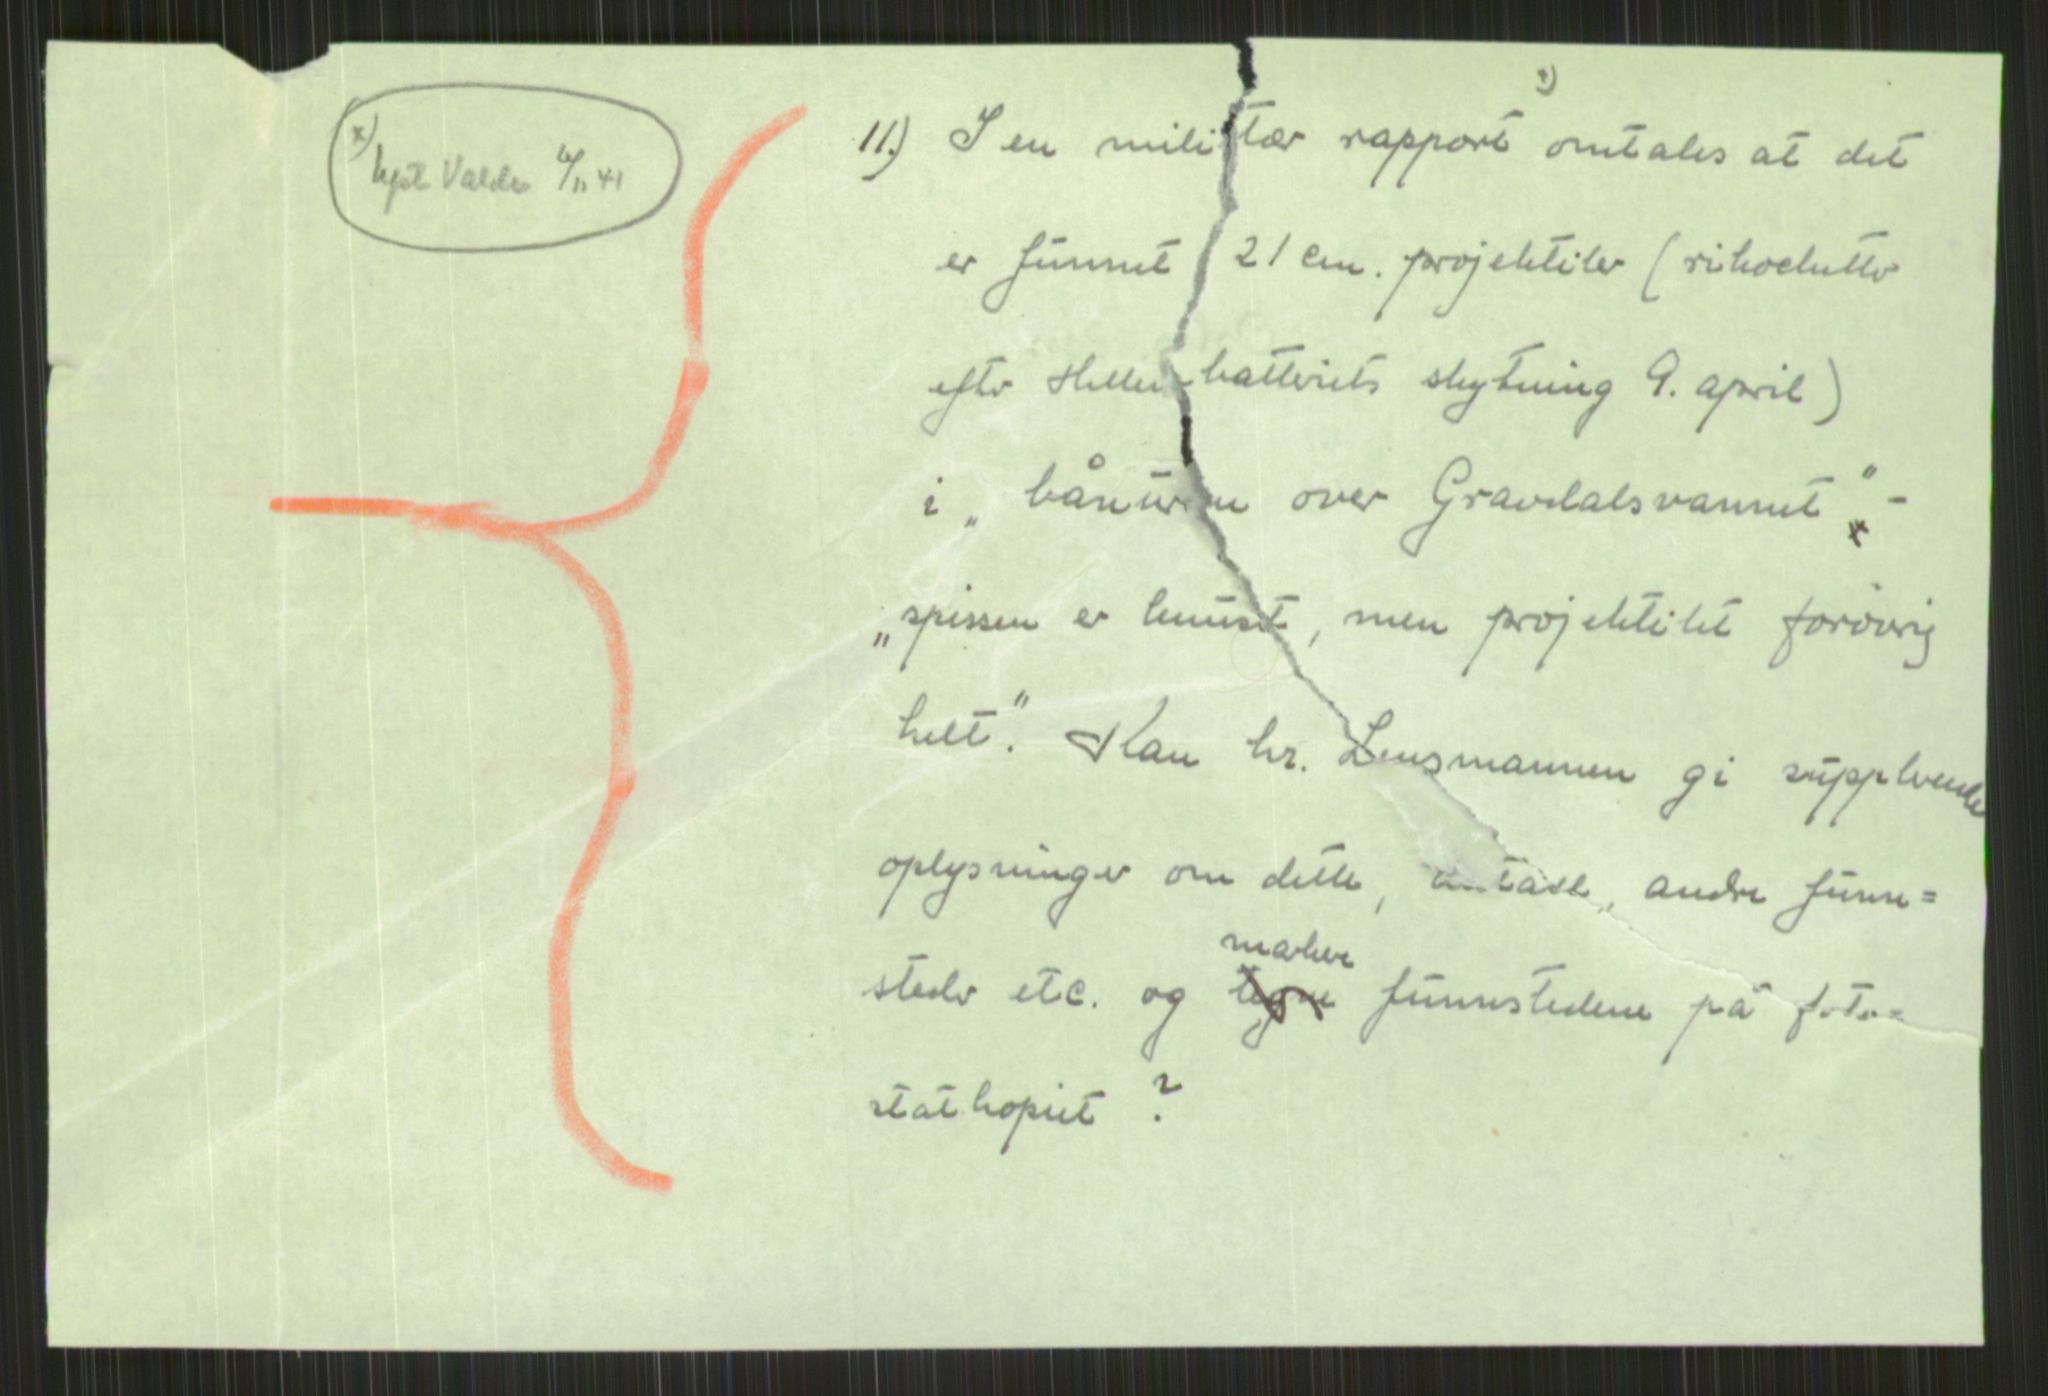 x) kpt. Valde 6/11 41
11.) I en militær rapport x) omtales at det
er funnet 21 cm. projektiler (rikochetter
efter Hellenbatteriets skytning 9. april)
i „ over Gravdalsvannet" -
„spissen er knust, men projektilet forøvrig
helt." Kan hr. Lensmannen gi supplerende
oplysninger om dette, antall, andre funn=
steder etc. og merke funnstedene på foto=
statkopiet ?